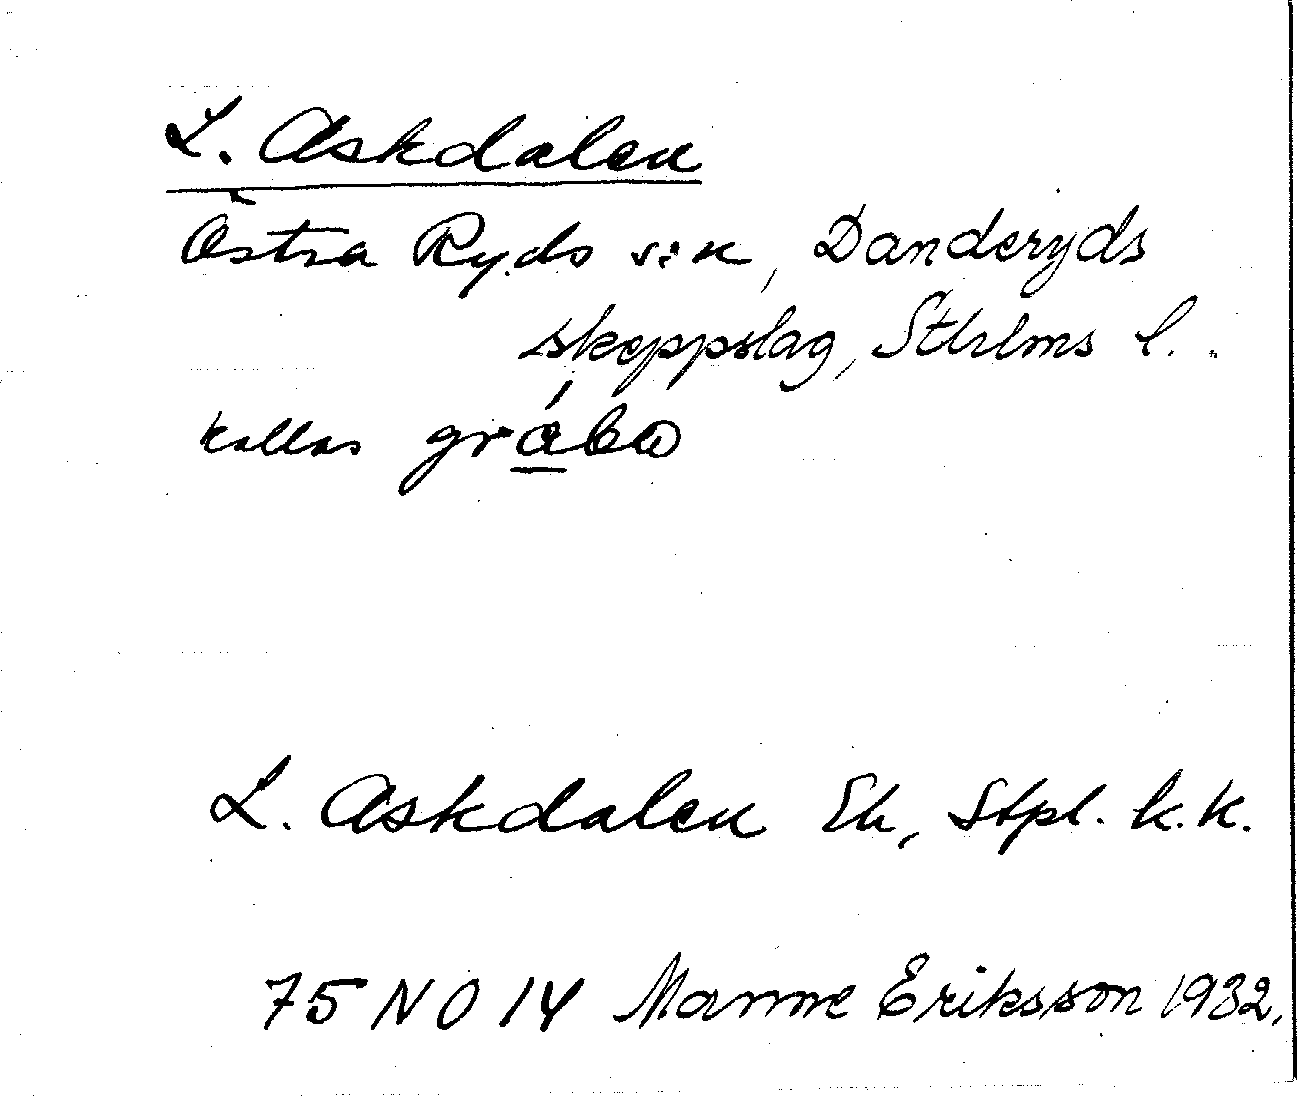 L. Askdalen
Östra Ryds s:n, Danderyds
skeppslag, Sthlms l.
kallas
L. Askdalen Ek, Stpl. k.k.
75 NO 14 Manne Eriksson 1932.